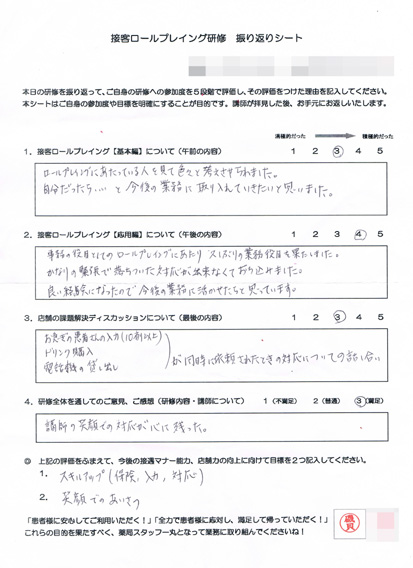 接客ロールプレイング研修　振り返りシート
本日の研修を振り返って、ご自身の研修への参加度を5段階で評価し、その評価をつけた理由を記入してください。
本シートはご自身の参加度や目標を明確にすることが目的です。講師が拝見した後、お手元にお返しいたします。
消極的だった　積極的だった
1、接客ロールプレイング【基本編】について（午前の内容）　1　2　3　4　5
ロールプレイングにあたっている人を見て色々と考えさせられました。
自分だったら…と今後の業務に取り入れていきたいと思いました。
2、接客ロールプレイング【応用編】について（午後の内容）　1　2　3　4　5
としてのロールプレイングにあたり 久しぶりの業務役目を果たしました。
かなりの緊張で落ちついた対応が出来なくておち込みました。
良い経験になったので今後の業務に活かせたらと思っています。
3、店舗の課題解決ディスカッションについて（最後の内容）　1　2　3　4　5
お急ぎの患者さんの入力（10剤以上）
ドリンク購入
の貸し出し
が同時に依頼されたときの対応についての話し合い
4、研修全体を通してのご意見、ご感想（研修内容・講師について）　1（不満足）　2（普通）　3（満足）
講師の笑顔での対応が心に残った。
◎　上記の評価をふまえて、今後の接遇マナー能力、店舗力の向上に向けて目標を2つ記入してください。
1. スキルアップ（保険、入力、対応）
2. 笑顔でのあいさつ
「患者様に安心してご利用いただく！」「全力で患者様に応対し、満足して帰っていただく！」
これらの目的を果たすべく、薬局スタッフ一丸となって業務に取り組んでくださいね！